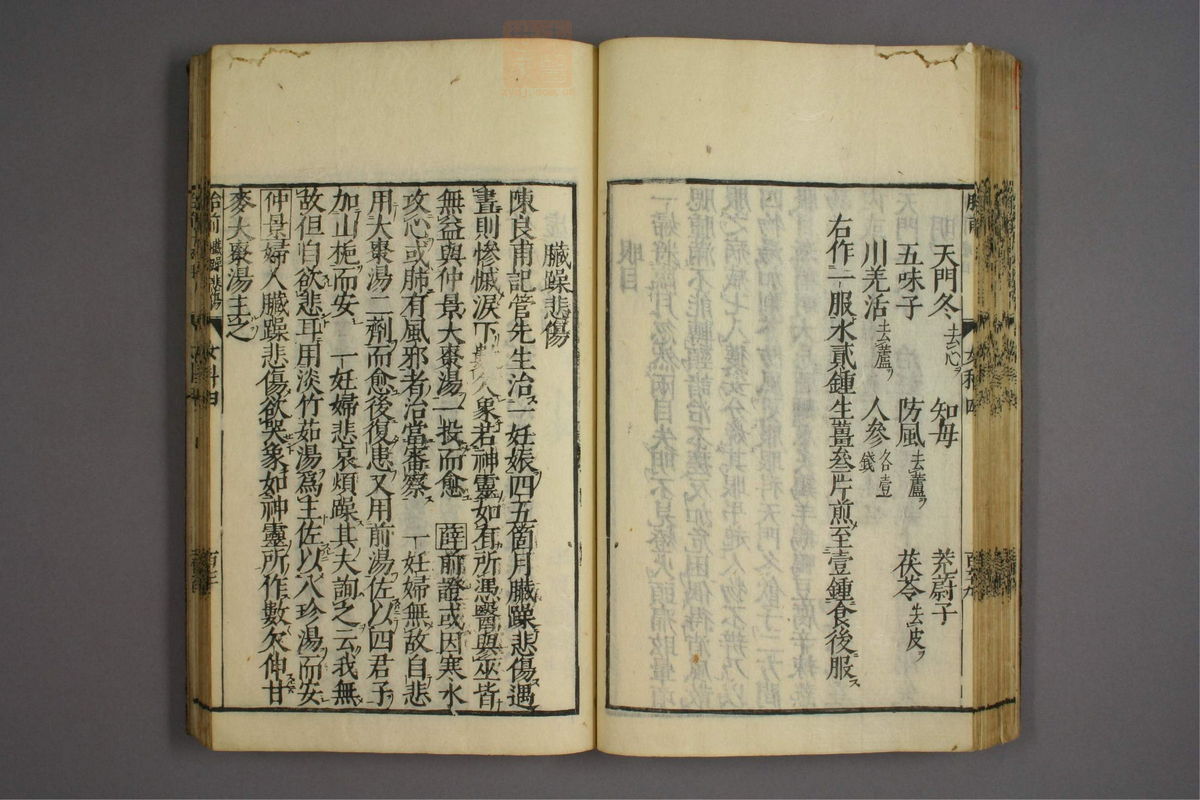 天門冬去心 知母 茺蔚子
五味子 防風去蘆 茯苓去皮
川羌活去蘆 人參各壹錢
右作一服水貳鍾生薑叁片煎至壹鍾食後服
臟躁悲傷
陳良甫記管先生治一妊娠四五箇月臟躁悲傷遇
晝則慘慽淚下數次象若神靈如有所憑醫與巫皆
無益與仲景大棗湯一投而愈 薛前證或因寒水
攻心或肺有風邪者治當審察 一妊婦無故自悲
用大棗湯二劑而愈後復患又用前湯佐以四君子
加山梔而安 一妊婦悲哀煩躁其夫詢之云我無
故但自欲悲耳用淡竹茹湯爲主佐以八珍湯而安
仲景婦人臟躁悲傷欲哭象如神靈所作數欠伸甘
麥大棗湯主之
胎前 臟躁悲傷 女科四